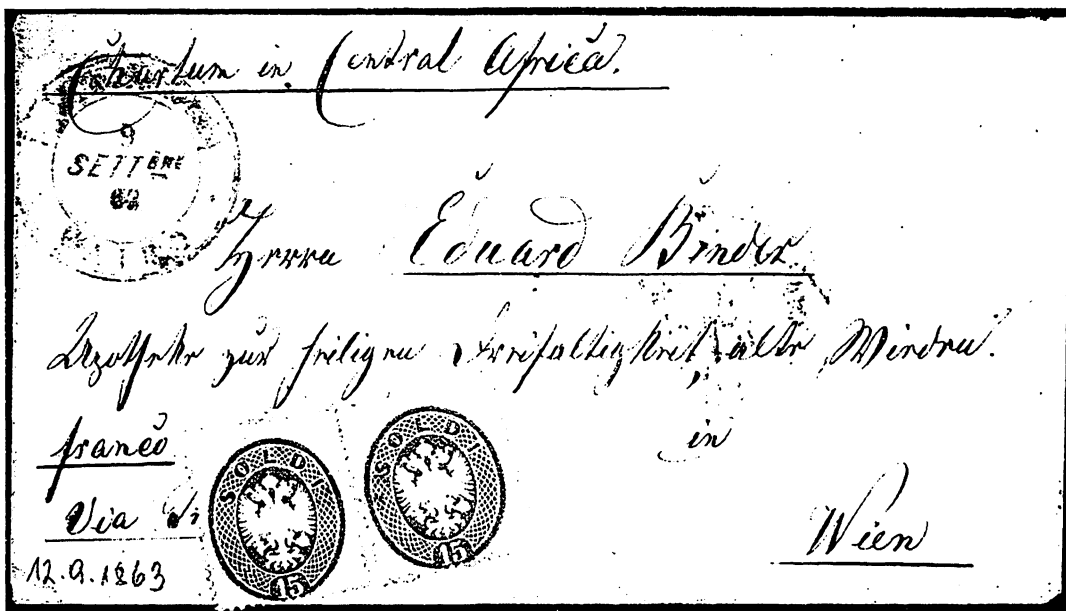 Chartum in Central Africa.
9
SETTBRE
Herrn Eduard Binder
Apotheke zur heiligen Dreifaltigkeit, alte Wieden.
franco
in
Via
Wien
12.9.1863
SOLDI
15
SOLDI
15